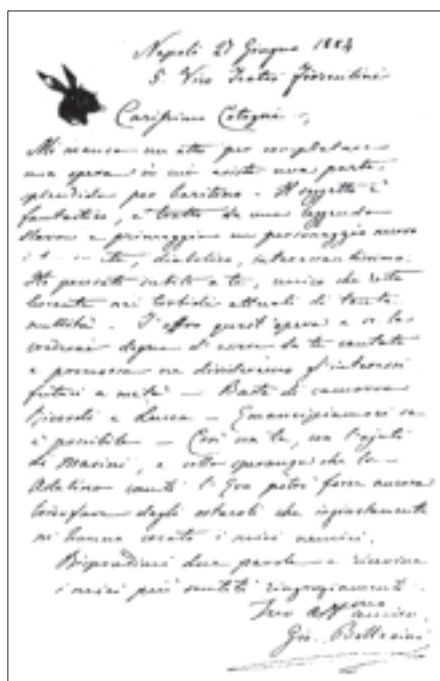 Napoli 27 Giugno 1884
5. Vico Teatro Fiorentini
Carissimo Cotogni,
Mi manca un atto per completare
una opera in cui esiste una parte
splendida per baritono - Il soggetto è
fantastico, è tratto da una leggenda
slava e primeggia un personaggio nuovo
diabolico, interessantissimo.
Ho pensato subito a te, unico che resta
nei torbidi attuali di tante
nullità. T'offro quest'opera e se la
crederai degna d'essere da te cantata
e promossa ne divideremo gl'interessi
futuri a metà - Basta di camorra
Ricordi e Lucca - Emancipiamoci se
è possibile - Così con te, con l'ajuto
di Masini, e sotto speranza che la
Adelina canti l' potrò forse ancora
trionfare degli ostacoli che ingiustamente
m'hanno creato i miei nemici.
Rispondimi due parole e ricevine
i miei più sentiti ringraziamenti.
Tuo aff.mo amico
Gio. Bolzoni